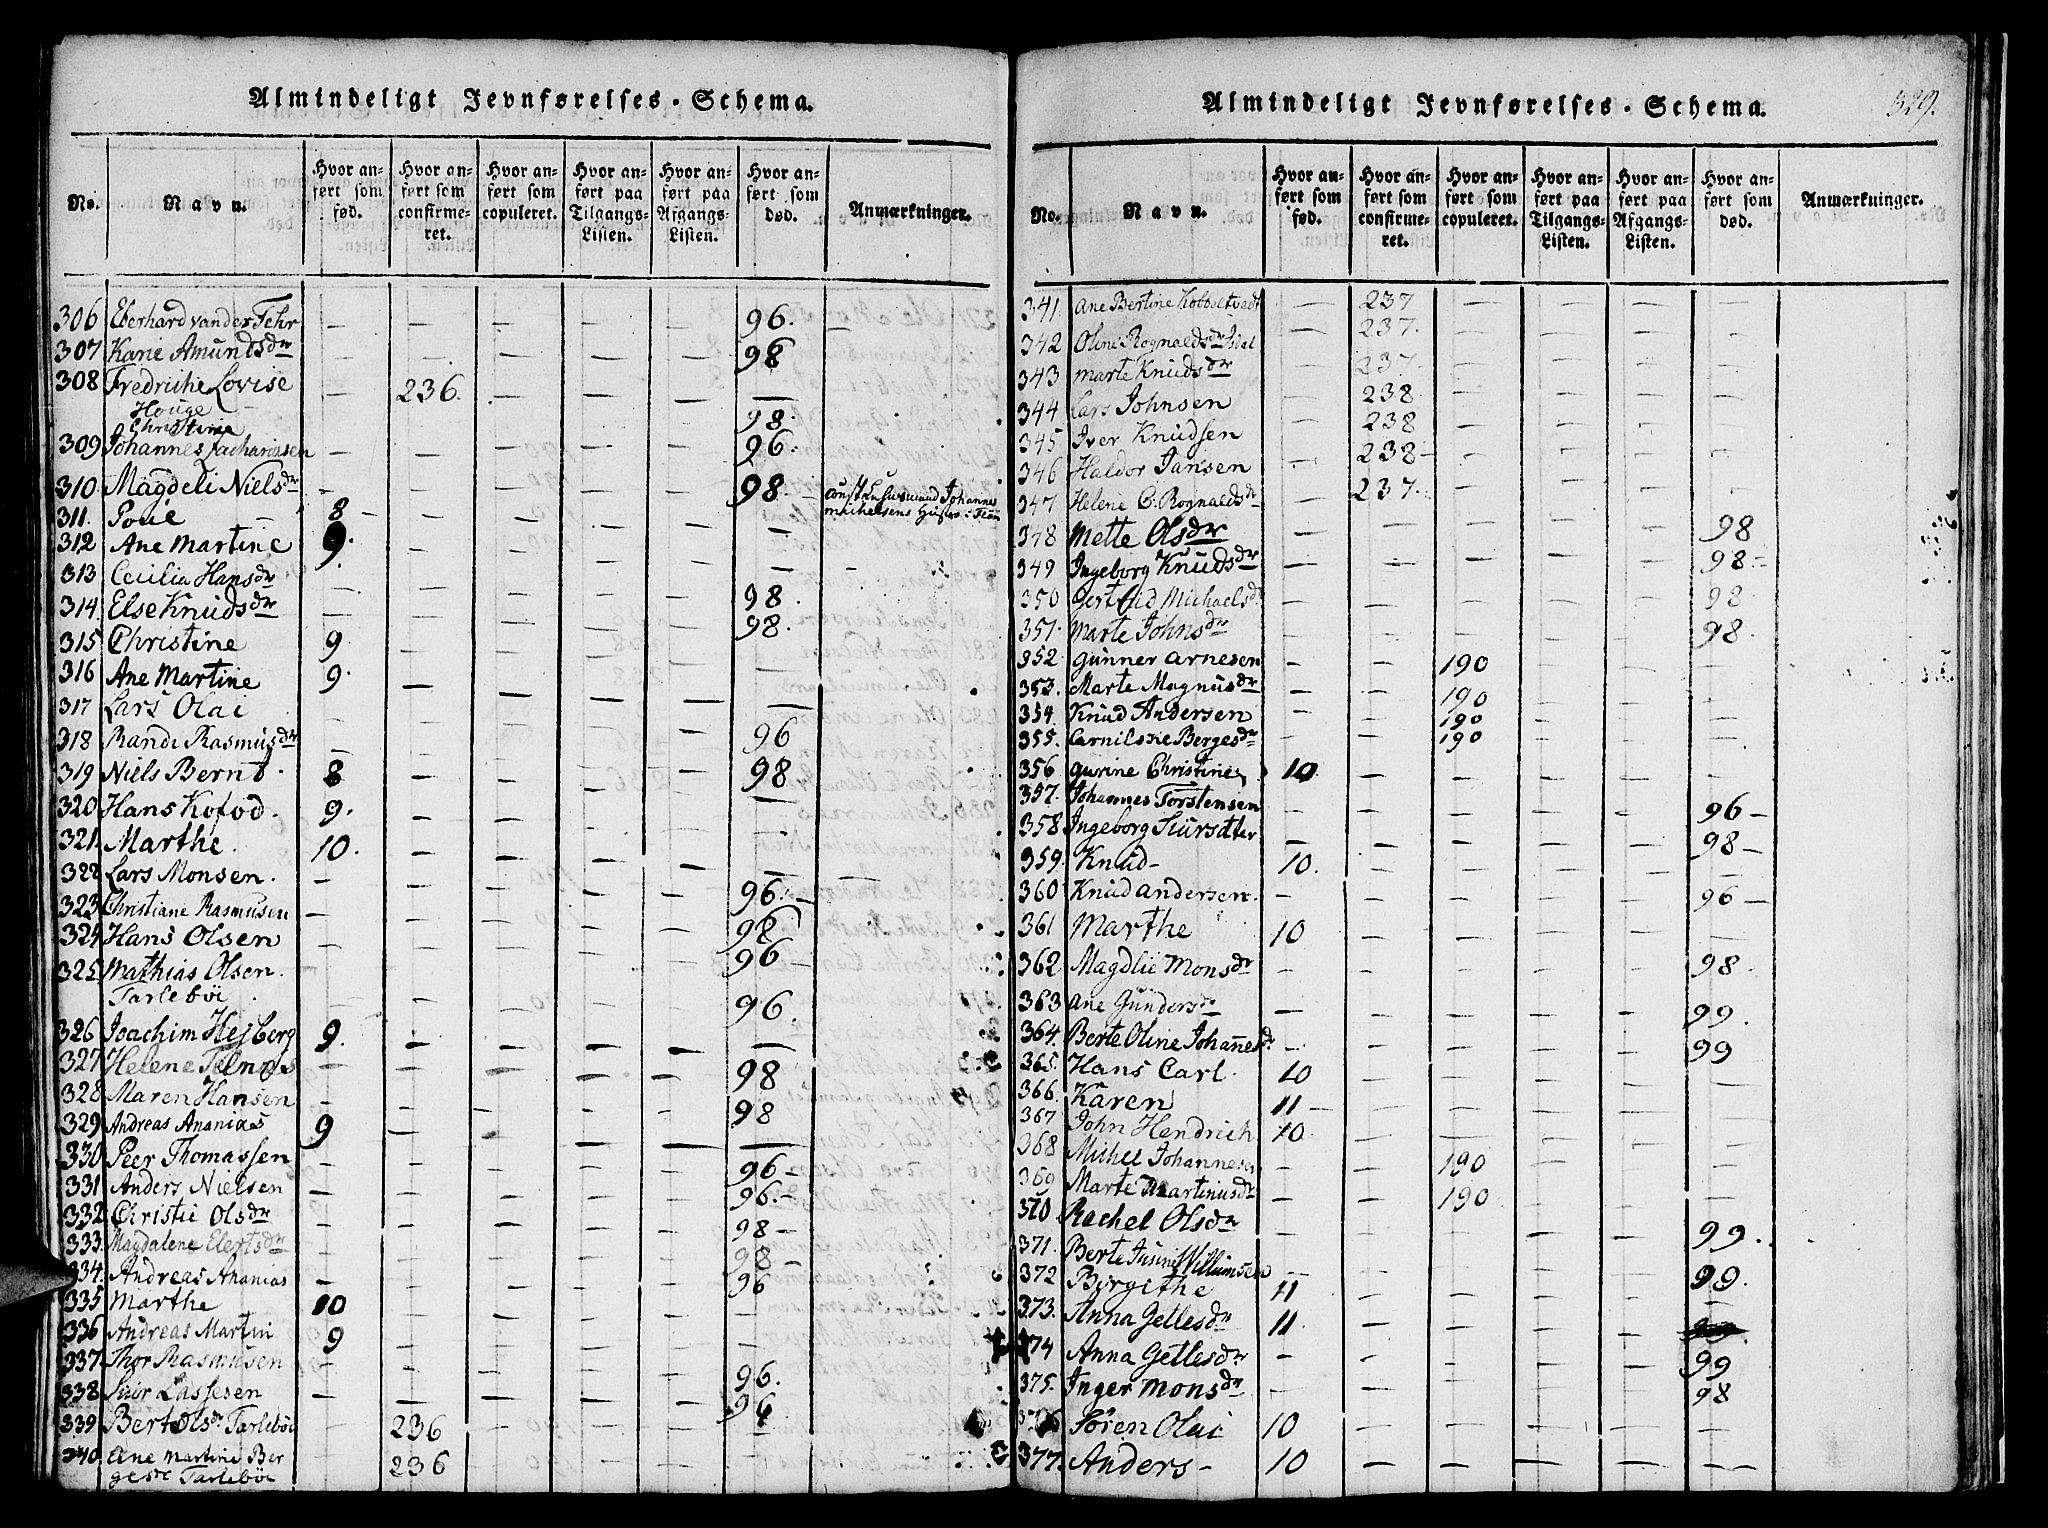 Almindeligt Jevnførelses-Schema.
No. Navn. Hvor anført som fød. Hvor anført som confirmeret. Hvor anført som copuleret. Hvor anført paa Tilgangs-Listen. Hvor anført paa Afgangs-Listen. Hvor anført som død. Anmærkninger.
306 Eberhard vander Fehr — — — — — 96. —
307 Karie Amundsdr — — — — — 98
308 Fredriche Lovise — 236. — — — —
Houge
Christina 98.
309 Johannes Zachariasen — — — — — 96.
310. Magdeli Nielsdr — — — — — 98. — Johannes
311. Poul — 8 — — — — —
312 Ane Martine 9. — — — — —
313 Cecilia Hansdr — — — — — 98.
314. Else Knudsdr — — — — — 98.
315 Christine 9 — — — — —
316 Ane Martine 9. — — — — —
317 Lars Olai — — — — — 96
318 Randi Rasmusdr — — — — — 98
319 Niels Bernt. 8 — — — — —
320 Hans Kofod. 9. — — — — —
321. Marthe. 10. — — — — —
322 Lars Monsen. — — — — — 96. —
323 Christiane Rasmusen — — — — — 98
324 Hans Olsen — — — — — 96 —
325. Mathias Olsen.
Tarlebøi. — — — — — 96.
326 Joachim Hejberg 9. — — — — —
327 Helene Telnæs — — — — — 98
328 Maren Hansen — — — — — 98
329 Andreas Ananias 9 — — — — —
330 Peer Thomassen — — — — — 96 —
331 Anders Nielsen — — — — — 96. —
332 Christie Olsdr — — — — — 98 —
333. Magdalene Elertsdr — — — — — 98 —
334. Andreas Ananias — — — — — 96
335 Marthe 10 — — — — —
336 Andreas Martin 9 — — — — —
337 Thor Rasmusen — — — — — 96.
338 Siur Lassesen — — — — — 96
339 Bert Olsdr Tarlebøi — 236 — — — —
340. Ane Martine Ber
gesdr Tarlebøi — 236 — — — —
Almindeligt Jevnførelses-Schema. 329.
No. Navn. Hvor anført som fød. Hvor anført som confirmeret. Hvor anført som copuleret. Hvor anført paa Tilgangs-Listen. Hvor anført paa Afgangs-Listen. Hvor anført som død. Anmærkninger.
341. Ane Bertine Kobbeltvedt — 237 — — — —
342 Oline Rognaldsdr Isdal — 237. — — — —
343 Marte Knudsdr — 237. — — — —
344 Lars Johnsen — 238 — — — —
345 Iver Knudsen — 238 — — — —
346 Haldor Jansen — 238 — — — —
347 Helene C. Rognaldsdr — 237. — — — —
348 Mette Olsdr — — — — — 98
349 Ingeborg Knudsdr — — — — — 98 —
350 Gertrud Michaelsdr — — — — — 98
351. Marte Johnsdr — — — — — 98.
352 Gunner Arnesen — — 190 — — —
353. Marte Magnusdr — — 190 — — —
354. Knud Andersen — — 190 — — —
355. Carnilske Bergesdr — — 190 — — —
356 Gurine Christine 10. — — — — —
357. Johannes Torstensen — — — — — 96 —
358 Ingeborg Siursdtter — — — — — 98 —
359. Knud — 10. — — — — —
360 Knud Andersen. — — — — — 96 —
361 Marthe 10 — — — — —
362 Magdlie Monsdr — — — — — 98.
363 Ane Gundersdr — — — — — 99.
364. Berte Oline Johannesdr — — — — — 99
365. Hans Carl. 10 — — — — —
366. Karen 11 — — — — —
367 John Hendrich 10. — — — — —
368 Michel Johannesen — — 190 — — —
369 Marte Martinusdr — — 190 — — —
370 Rachel Olsdr — — — — — 99.
371. Berte Jusine Villumsen — — — — — 99.
372 Bergithe 11 — — — — —
373. Anna Gellesdr 11 — — — —
374 Anna Gellesdr — — — — — 99
375. Inger Monsdr — — — — — 98
376 Søren Olai 10 — — — — —
377. Anders — 10 — — — — —